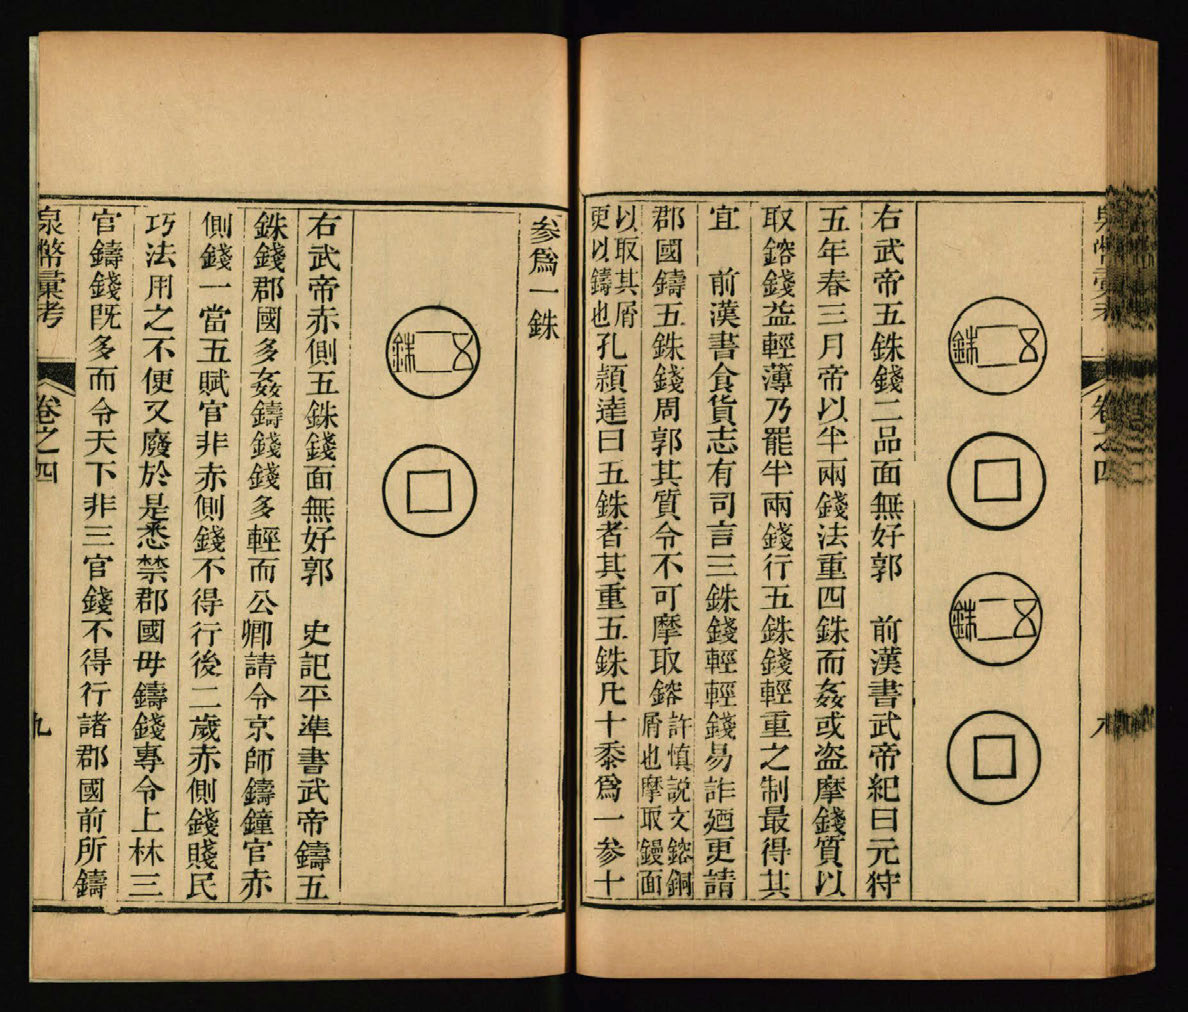 泉幣彙考
卷之四
五銖
五銖
右武帝五銖錢二品面無好郭　前漢書武帝紀曰元狩
五年春三月帝以半兩錢法重四銖而姦或盗摩錢質以
取鎔錢益輕薄乃罷半兩錢行五銖錢輕重之制最得其
宜　前漢書食貨志有司言三銖錢輕輕錢易詐廼更請
郡國鑄五銖錢周郭其質令不可摩取鎔
許慎説文鎔銅
屑也摩取鏝面
以取其屑
更以鑄也
孔穎達曰五銖者其重五銖凡十黍爲一參十
參爲一銖
五銖
右武帝赤側五銖錢面無好郭　史記平準書武帝鑄五
銖錢郡國多姦鑄錢錢多輕而公卿請令京師鑄鐘官赤
側錢一當五賦官非赤側錢不得行後二歲赤側錢賤民
巧法用之不便又廢於是悉禁郡國毋鑄錢專令上林三
官鑄錢既多而令天下非三官錢不得行諸郡國前所鑄
泉幣彙考
卷之四
九